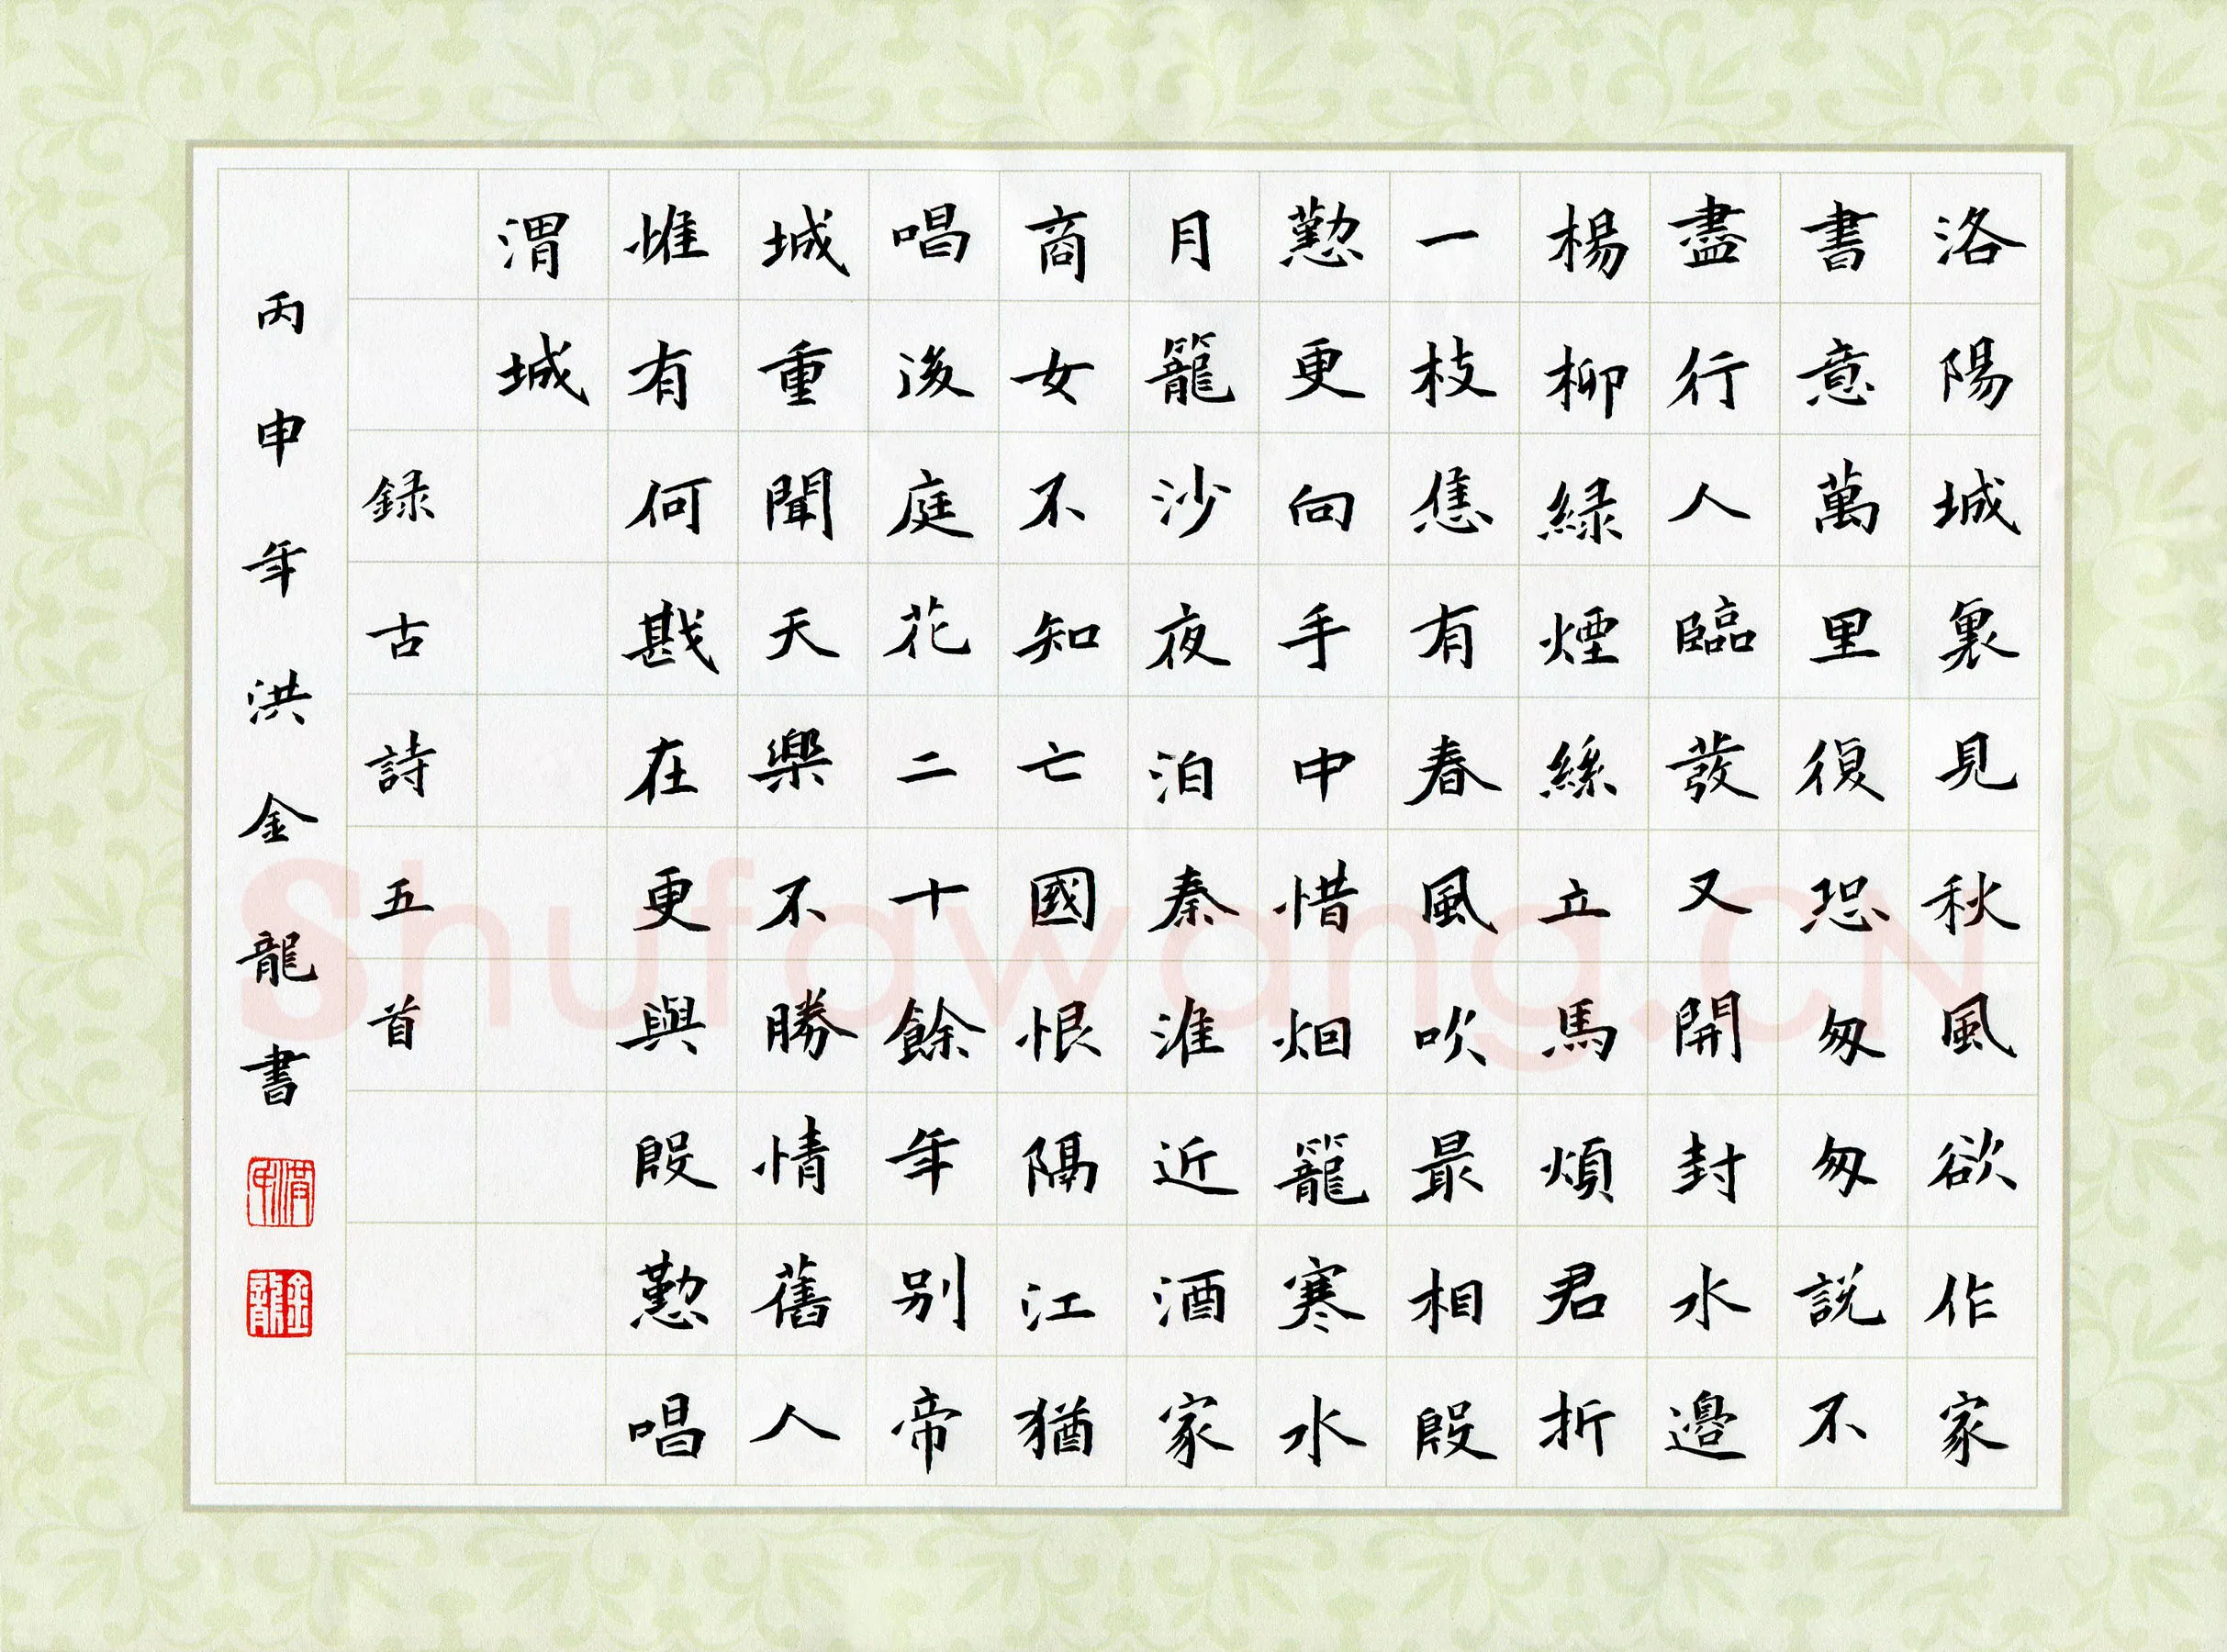 洛陽城裏見秋風欲作家
書意萬里復恐匆匆説不
盡行人臨發又開封水邊
楊柳緑煙絲立馬煩君折
一枝惟有春風吹最相殷
懃更向手中惜烟籠寒水
月籠沙夜泊秦淮近酒家
商女不知亡國恨隔江猶
唱後庭花二十餘年别帝
城重聞天樂不勝情舊人
惟有何戡在更與殷懃唱
渭城
録古詩五首
丙申年洪金龍書
洪印
金龍
Shufawang.CN